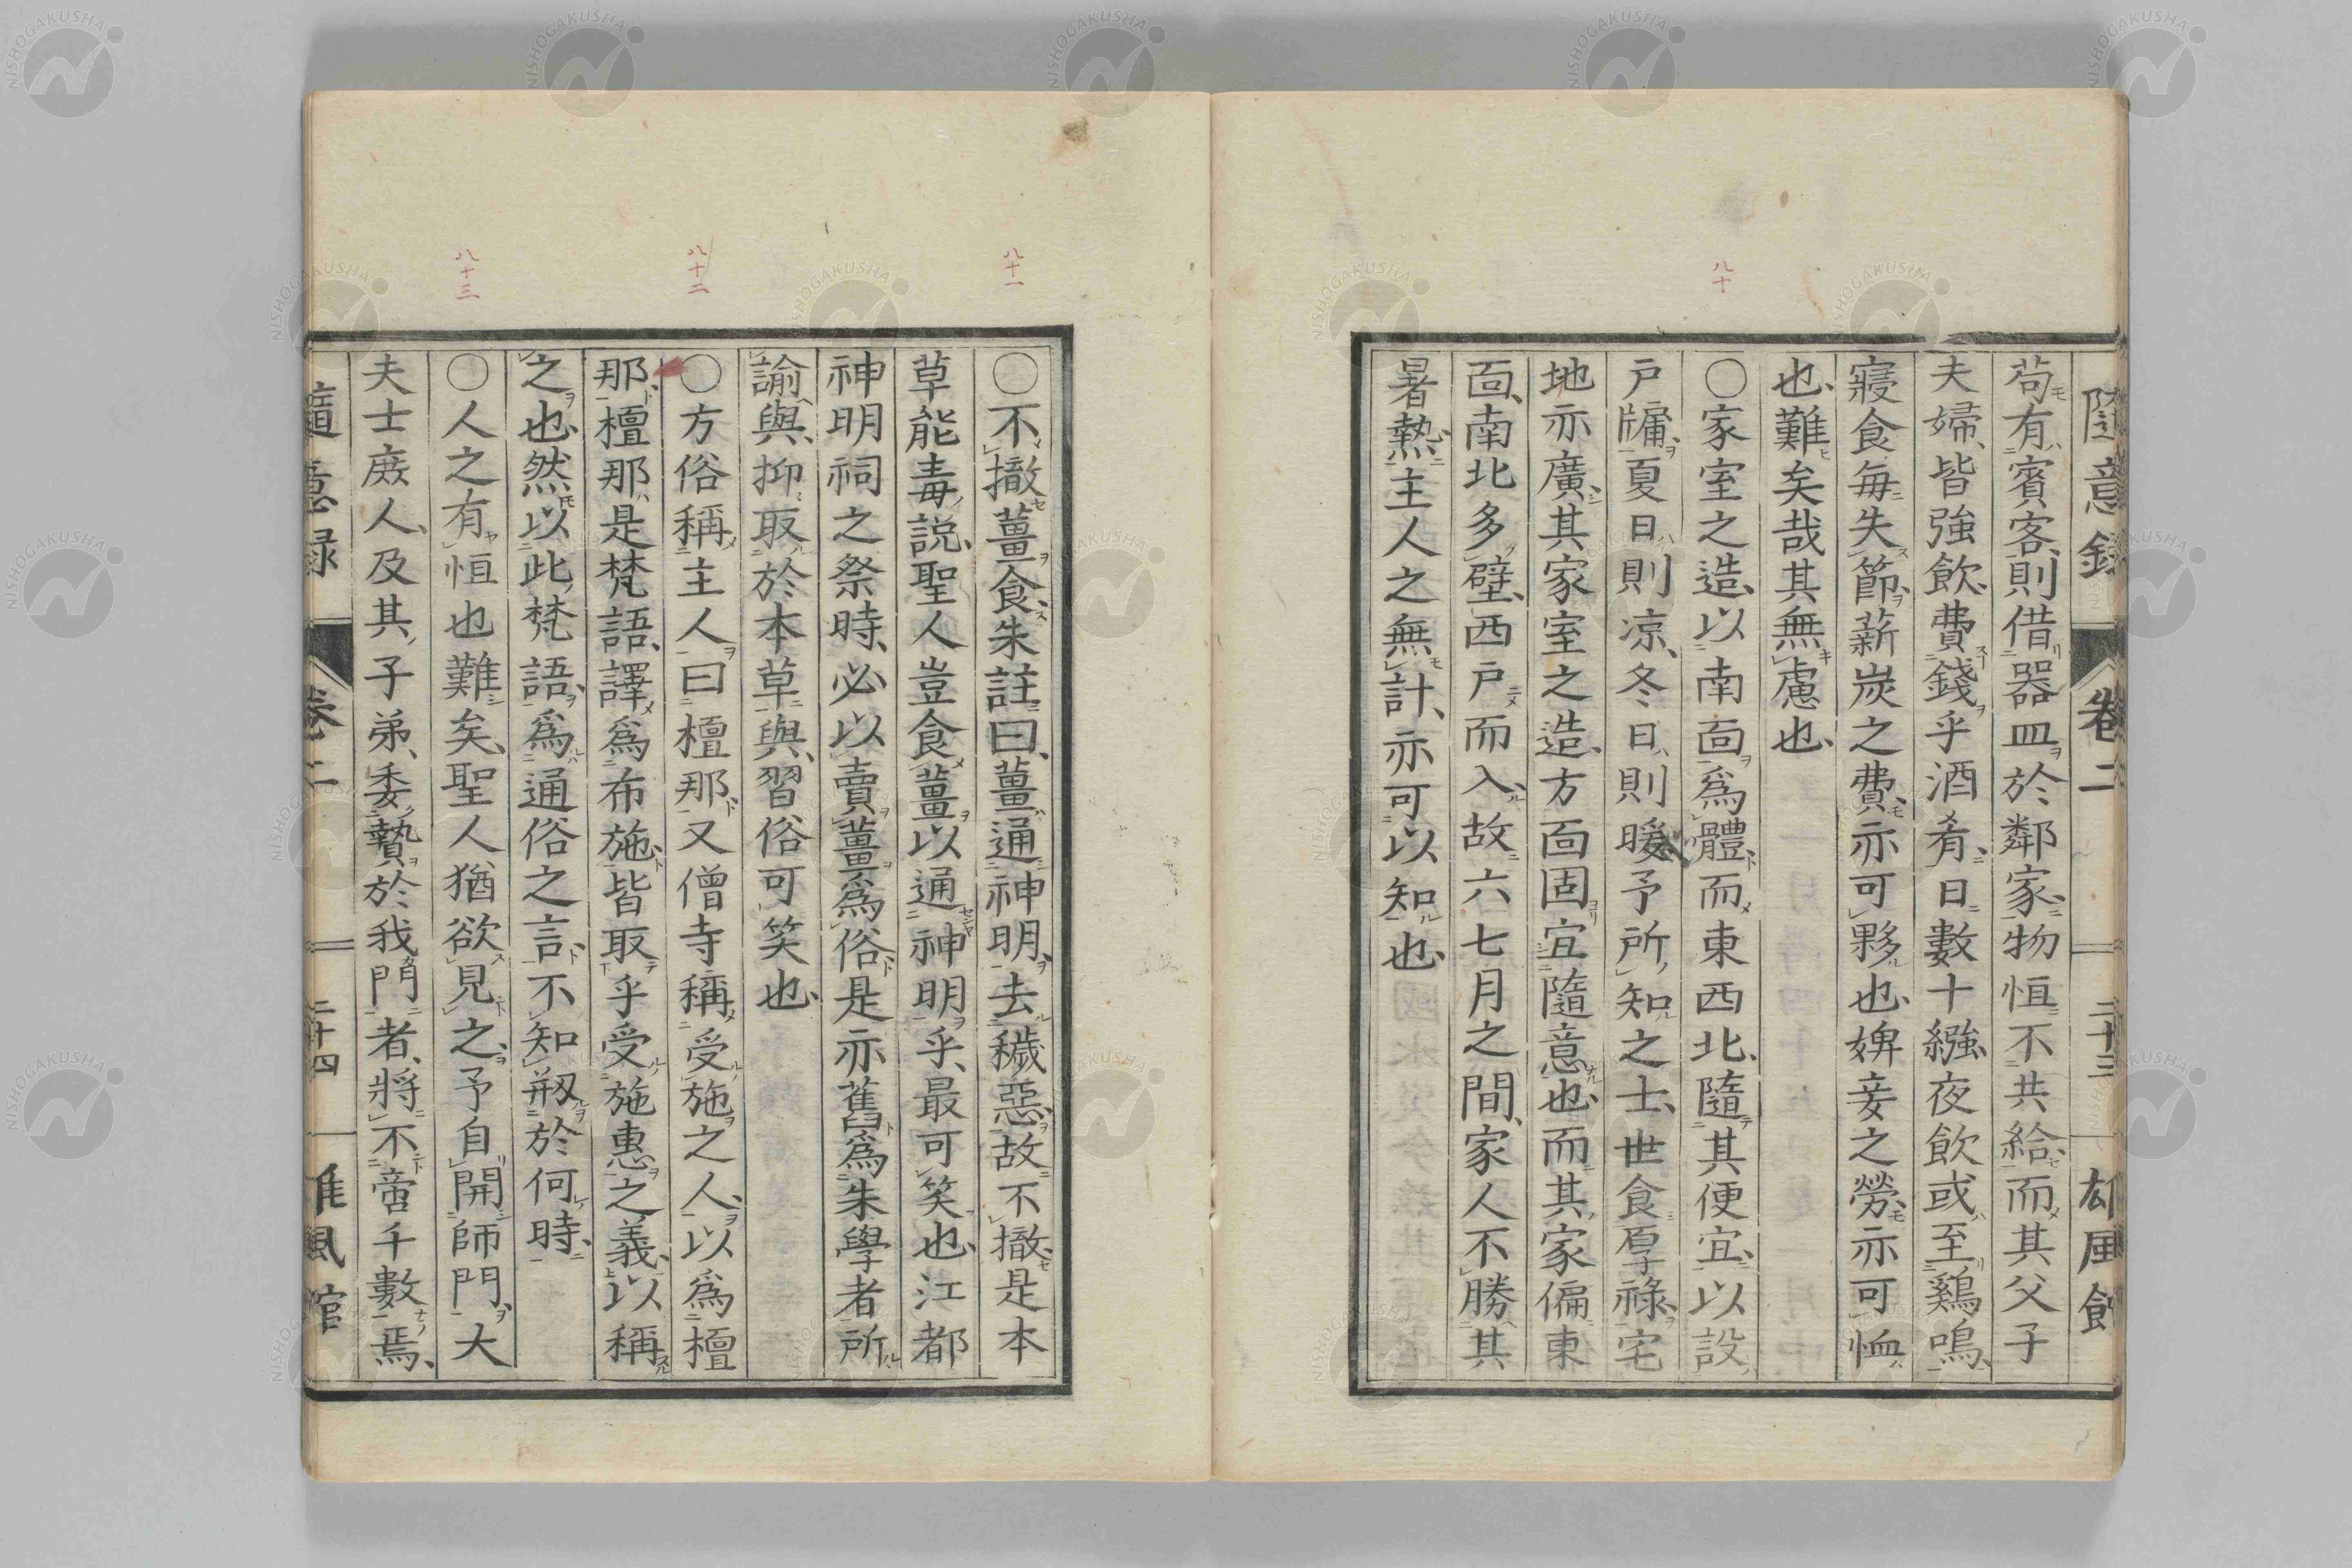 隨意錄 卷二 二十三 雄風館
苟有賓客、則借器皿於鄰家、物恒不共給、而其父子
夫婦、皆強飲、費錢乎酒肴、日數十繈、夜飲或至鷄鳴、
寢食每失節、薪炭之費、亦可夥也、婢妾之勞、亦可恤
也、難矣哉其無慮也、
八十
〇家室之造、以南面爲體、而東西北、隨其便宜、以設
戶牖、夏日則凉、冬日則暖、予所知之士、世食厚祿、宅
地亦廣、其家室之造、方面固宜隨意也、而其家偏東
面、南北多壁、西戶而入、故六七月之間、家人不勝其
暑熱、主人之無計、亦可以知也、
八十一
〇不撤薑食、朱註曰、薑通神明、去穢惡、故不撤、是本
草能毒說、聖人豈食薑以通神明乎、最可笑也、江都
神明祠之祭時、必以賣薑爲俗、是亦舊爲朱學者所
諭與、抑取於本草與、習俗可笑也、
八十二
〇方俗稱主人曰檀那、又僧寺稱受施之人、以爲檀
那、檀那是梵語、譯爲布施、皆取乎受施惠之義、以稱
之也、然以此梵語、爲通俗之言、不知剏於何時、
八十三
〇人之有恒也難矣、聖人猶欲見之、予自開師門、大
夫士庻人、及其子弟、委贄於我門者、將不啻千數焉、
隨意錄 卷二 二十四 雄風館
NISHOGAKUSHA